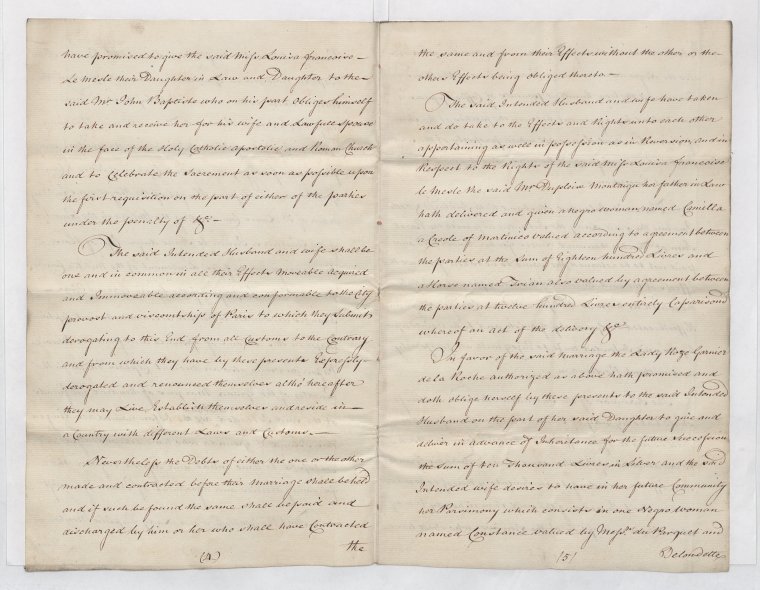 have promised to give the said Miss Louisa Francoise –
Le Mesle their Daughter in Law and Daughter to the –
said Mr John Baptiste who on his part obliges himself
to take and receive her for his wife and Lawfull Spouse
in the face of the Holy Catholic apostolic and Roman Church
and to Celebrate the Sacrement as soon as possible upon
the first requisition on the part of either of the parties
under the penalty of &c. –
The said Intended Husband and wife shall be
one and in common in all their Effects moveable acquired
and Immoveable according and conformable to the City
provost and viscountship of Paris to which they Submit
derogating to this End from all Customs to the Contrary
and from which they have by these presents Expressly –
derogated and renounced themselves altho' hereafter
they may Live, Establish themselves and reside in –
a Country with different Laws and Customs. –
Nevertheless the Debts of either the one or the other
made and contracted before their Marriage shall be paid
and if such be found the same shall be paid and
discharged by him or her who shall have Contracted
the
(4)
the same and from their Effects without the other or the
others Effects being obliged thereto –
The said Intended Husband and wife have taken
and do take to the Effects and Rights unto each other
appertaining as well in possession as in Reversion, and in
Respect to the Rights of the said Miss Louisa Francoise
le Mesle the said Mr Duplisis Montaigu her father in Law
hath delivered and given a negro woman named Camilla
a Creole of Martinico valued according to agreement between
the parties at the Sum of Eighteen hundred Livres and
a Horse named also valued by agreement between
the parties at twelve hundred Livres entirely Caparisond
whereof an act of the delivery &c
In favor of the said marriage the Lady Roze Garnier
de la Roche authorized as above hath promised and
doth oblige herself by these presents to the said Intended
Husband on the part of her said Daughter to give and
deliver in advance of Inheritance for the future Succession
the Sum of ten Thousand Livres in Silver and the said
Intended wife desires to have in her future Community
her Parsimony which consists in one Negro woman
named Constance valued by Messrs du Parquet and
(5)